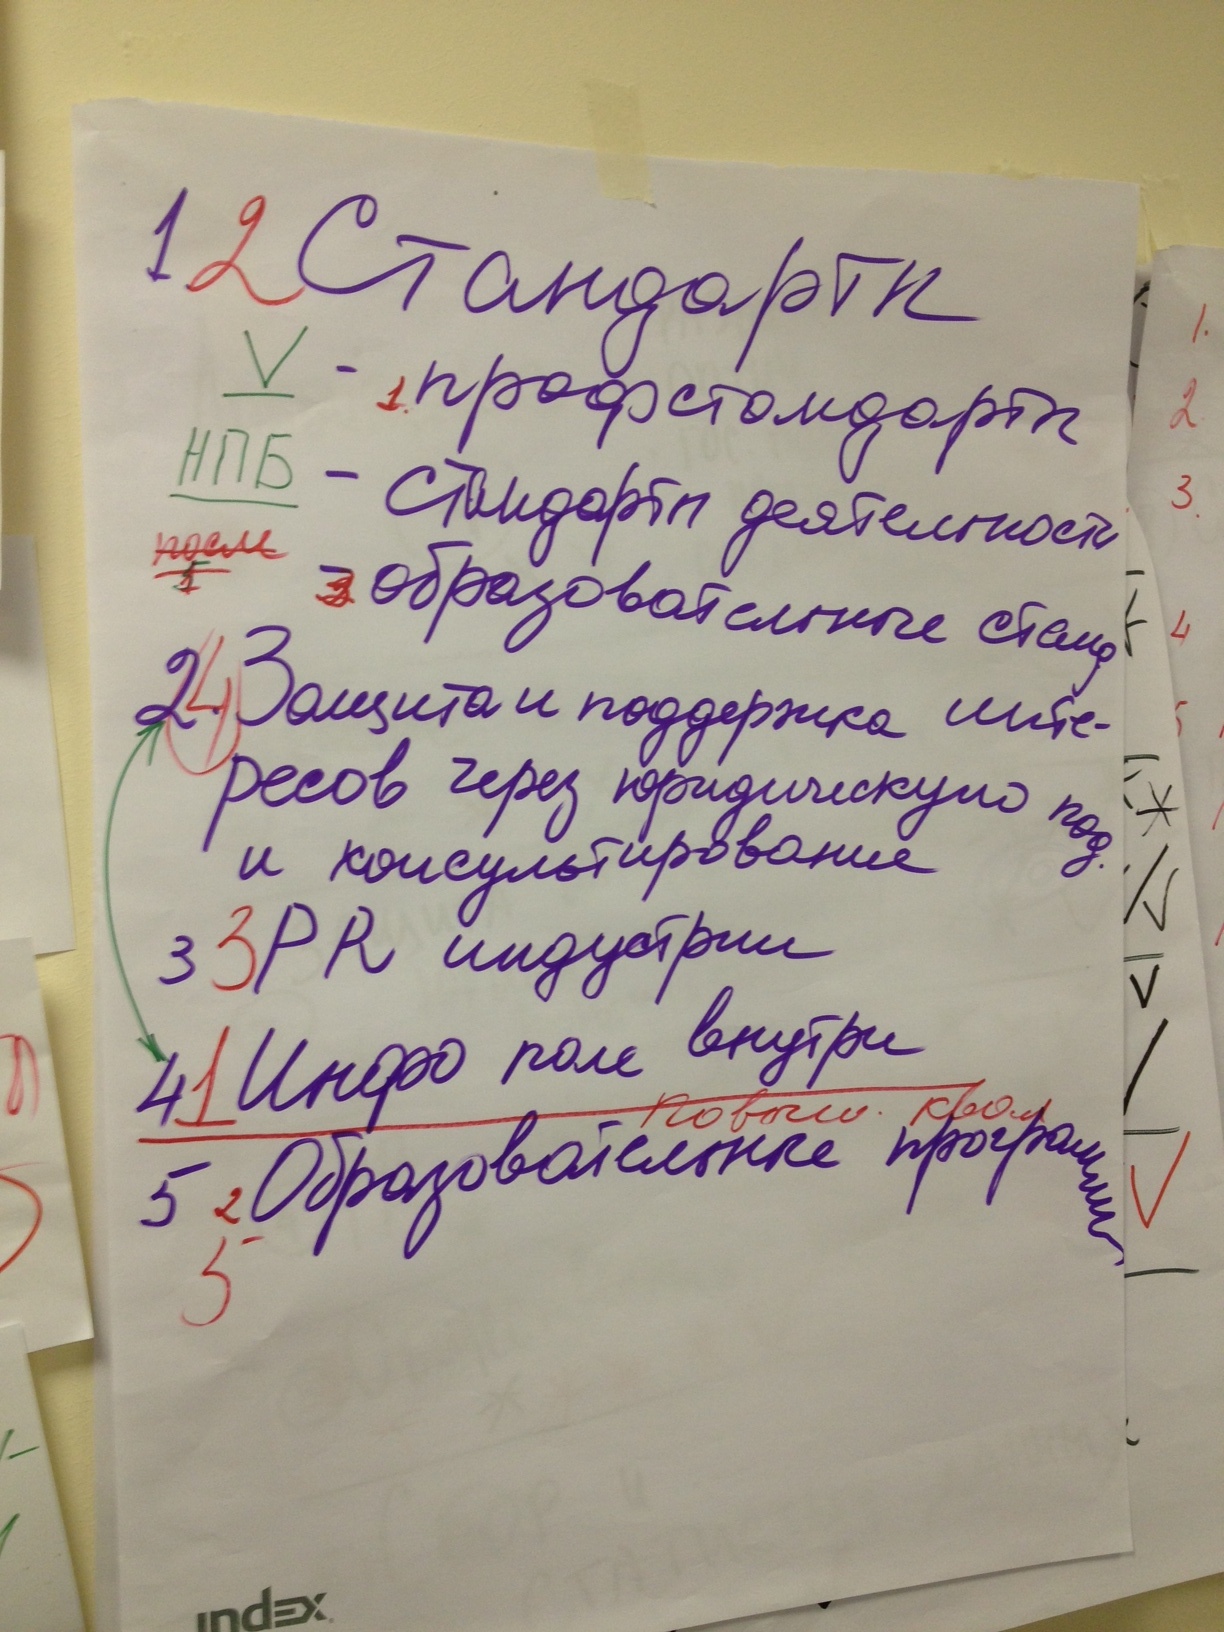 1 2 Стандарты
V - 1. профстандарты
НПБ - Стандарты деятельности
после 5 - 3 образовательные станд
2. 4 Защита и поддержка инте-
ресов через юридическую под.
и консультирование
3 3 PR индустрии
4 1 Инфо поле внутри
Повыш. квал
5 2 Образовательные программы
5
index
1.
2.
3.
4
5